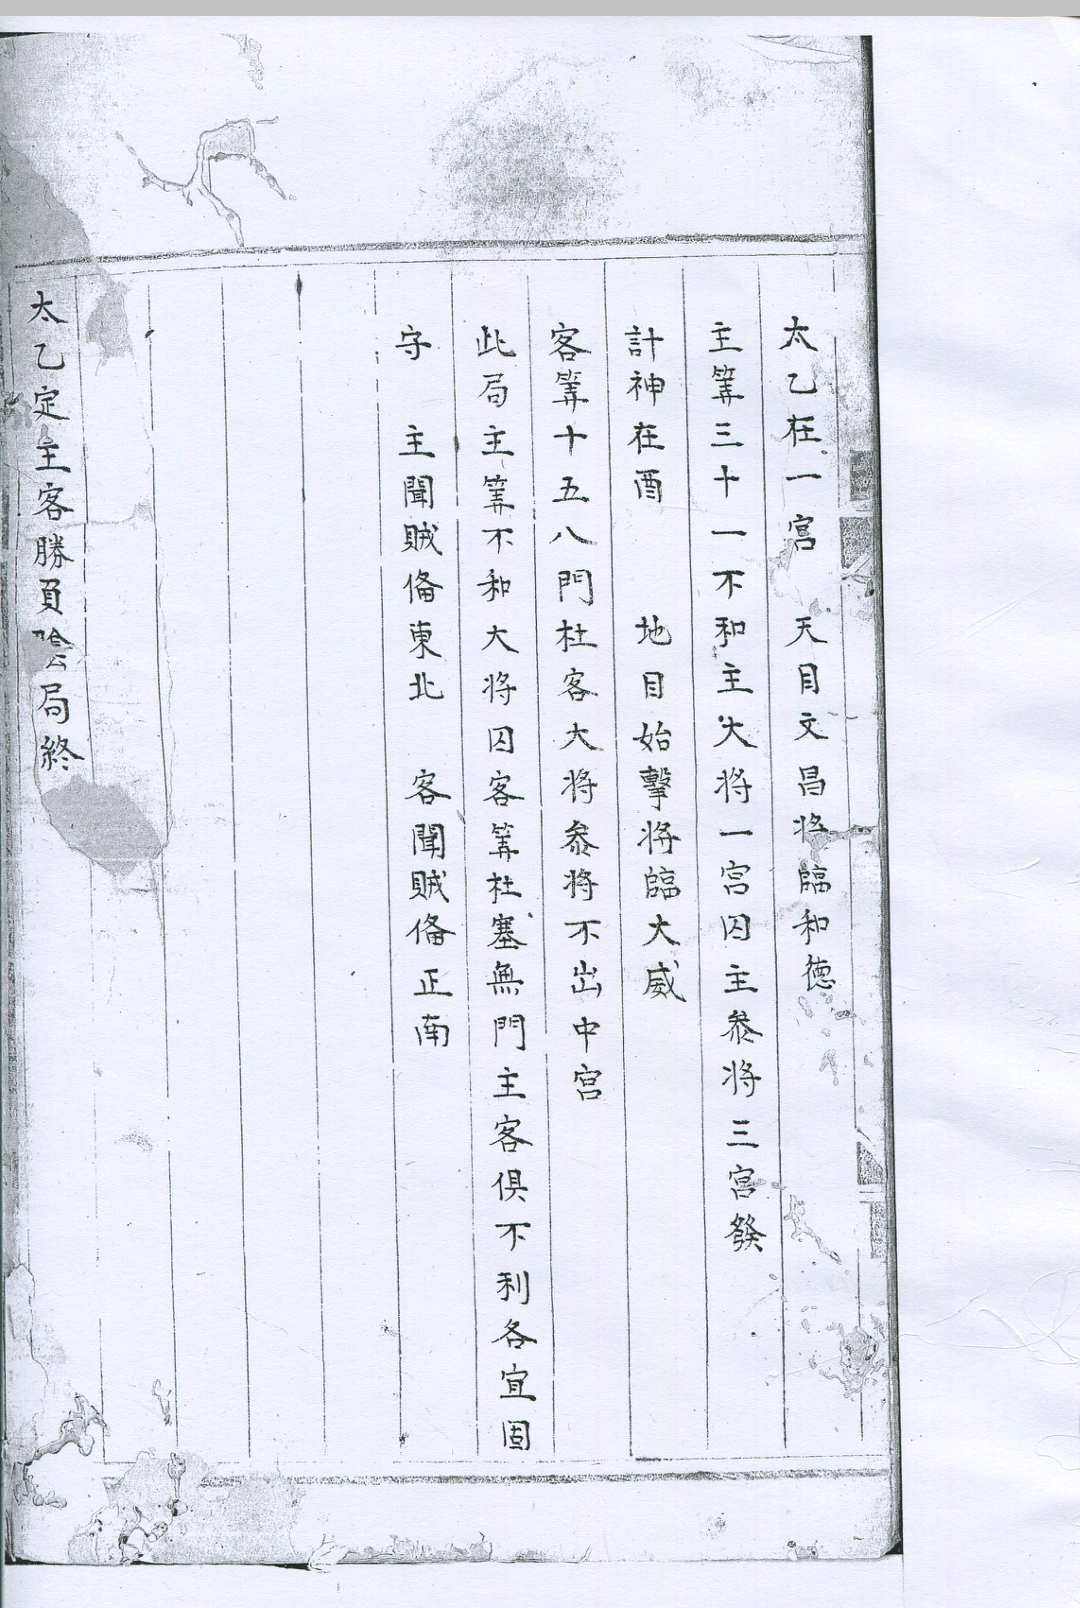 太乙在一宮　天目文昌将臨和德
主筭三十一不和主大将一宮囚主叅将三宮發
計神在酉　地目始擊将臨大威
客筭十五八門杜客大将叅将不出中宮
此局主筭不和大将囚客筭杜塞無門主客俱不利各宜固
守　主聞賊俻東北　客聞賊俻正南
太乙定主客勝負陰局終